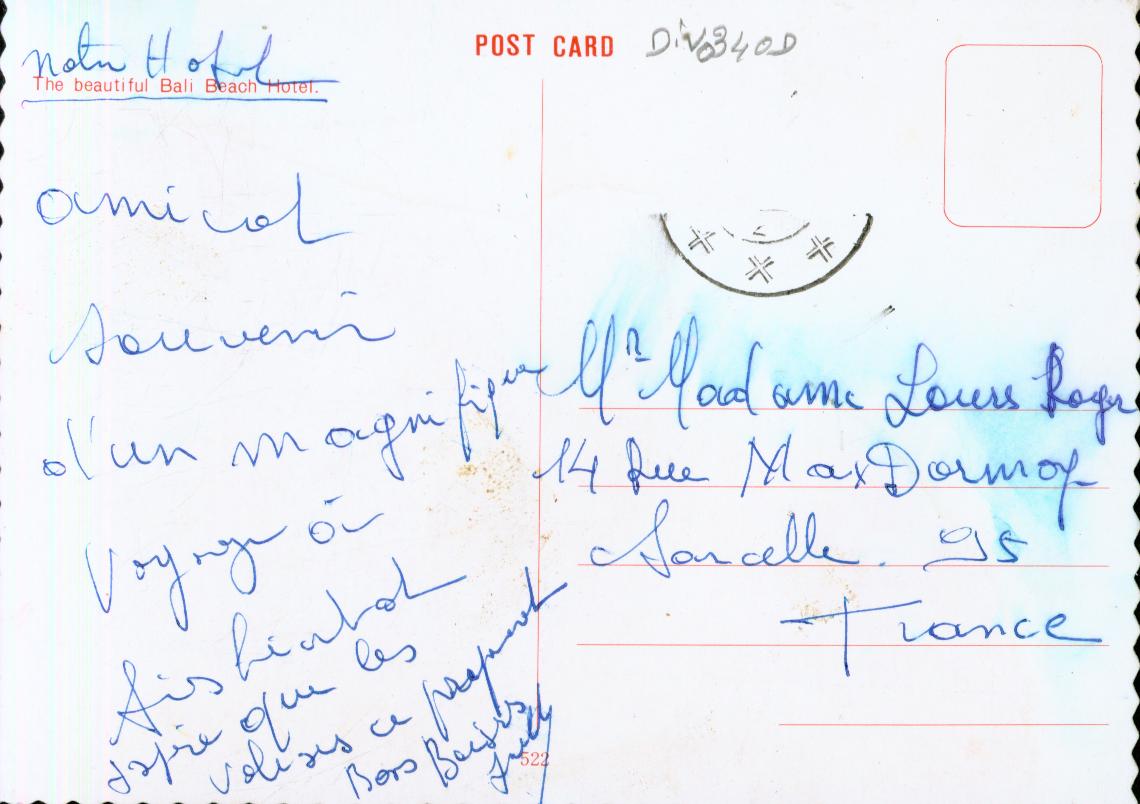 notre Hotel
The beautiful Bali Beach Hotel.
amical
souvenir
d'un magnifique
voyage
A bientot
que les
valises ce preparent
Bons Baisers
522
POST CARD
DIV0340D
Mr Madame Louis Roger
14 Rue Max Dormoy
Sarcelle. 95
France